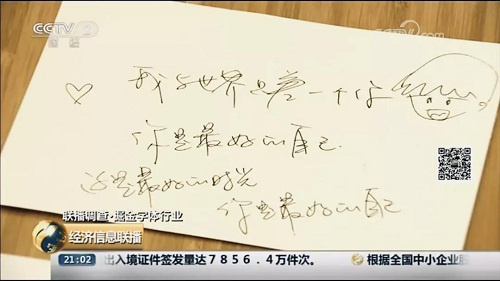 CCTV 2
财经
我与世界只差一个你
你是最好的自己
这是最好的时光
你是最好的自己
联播调查·掘金字体行业
经济信息联播
21:02
出入境证件签发量达7856.4万件次。
根据全国中小企业股